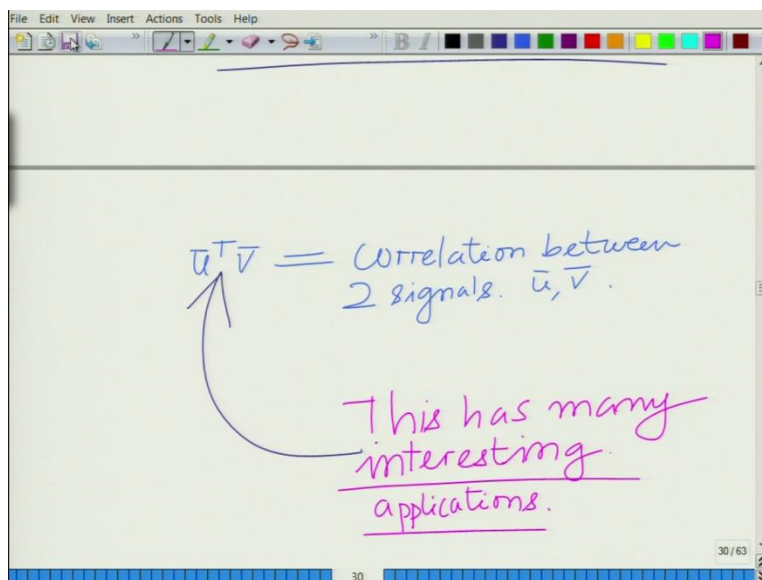 File Edit View Insert Actions Tools Help
B I
ū^T v̄ = Correlation between
2 signals. ū, v̄.
This has many
interesting.
applications.
30/63
30